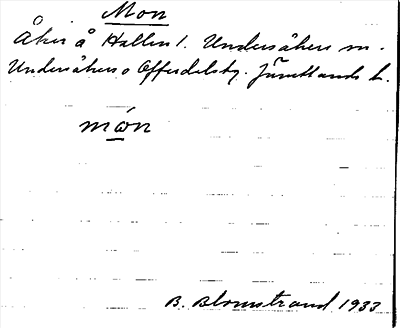 Mon
Åker å Hallen 1. Undersåkers sn.
Undersåkers o Offerdals tg. Jämtlands l.
mόn
B. Blomstrand 1933